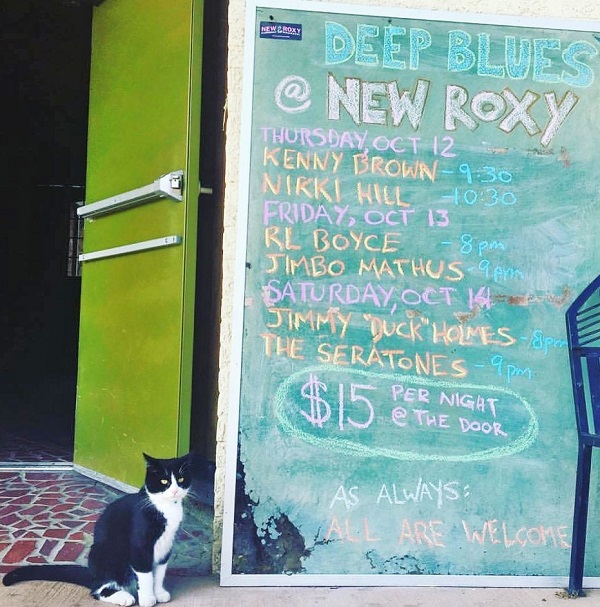 NEW ROXY
DEEP BLUES
@ NEW ROXY
THURSDAY, OCT 12
KENNY BROWN - 9:30
NIKKI HILL - 10:30
FRIDAY, OCT 13
RL BOYCE - 8pm
JIMBO MATHUS - 9pm
SATURDAY, OCT 14
JIMMY "DUCK" HOLMES - 8pm
THE SERATONES - 9pm
$15 PER NIGHT
@ THE DOOR
AS ALWAYS:
ALL ARE WELCOME